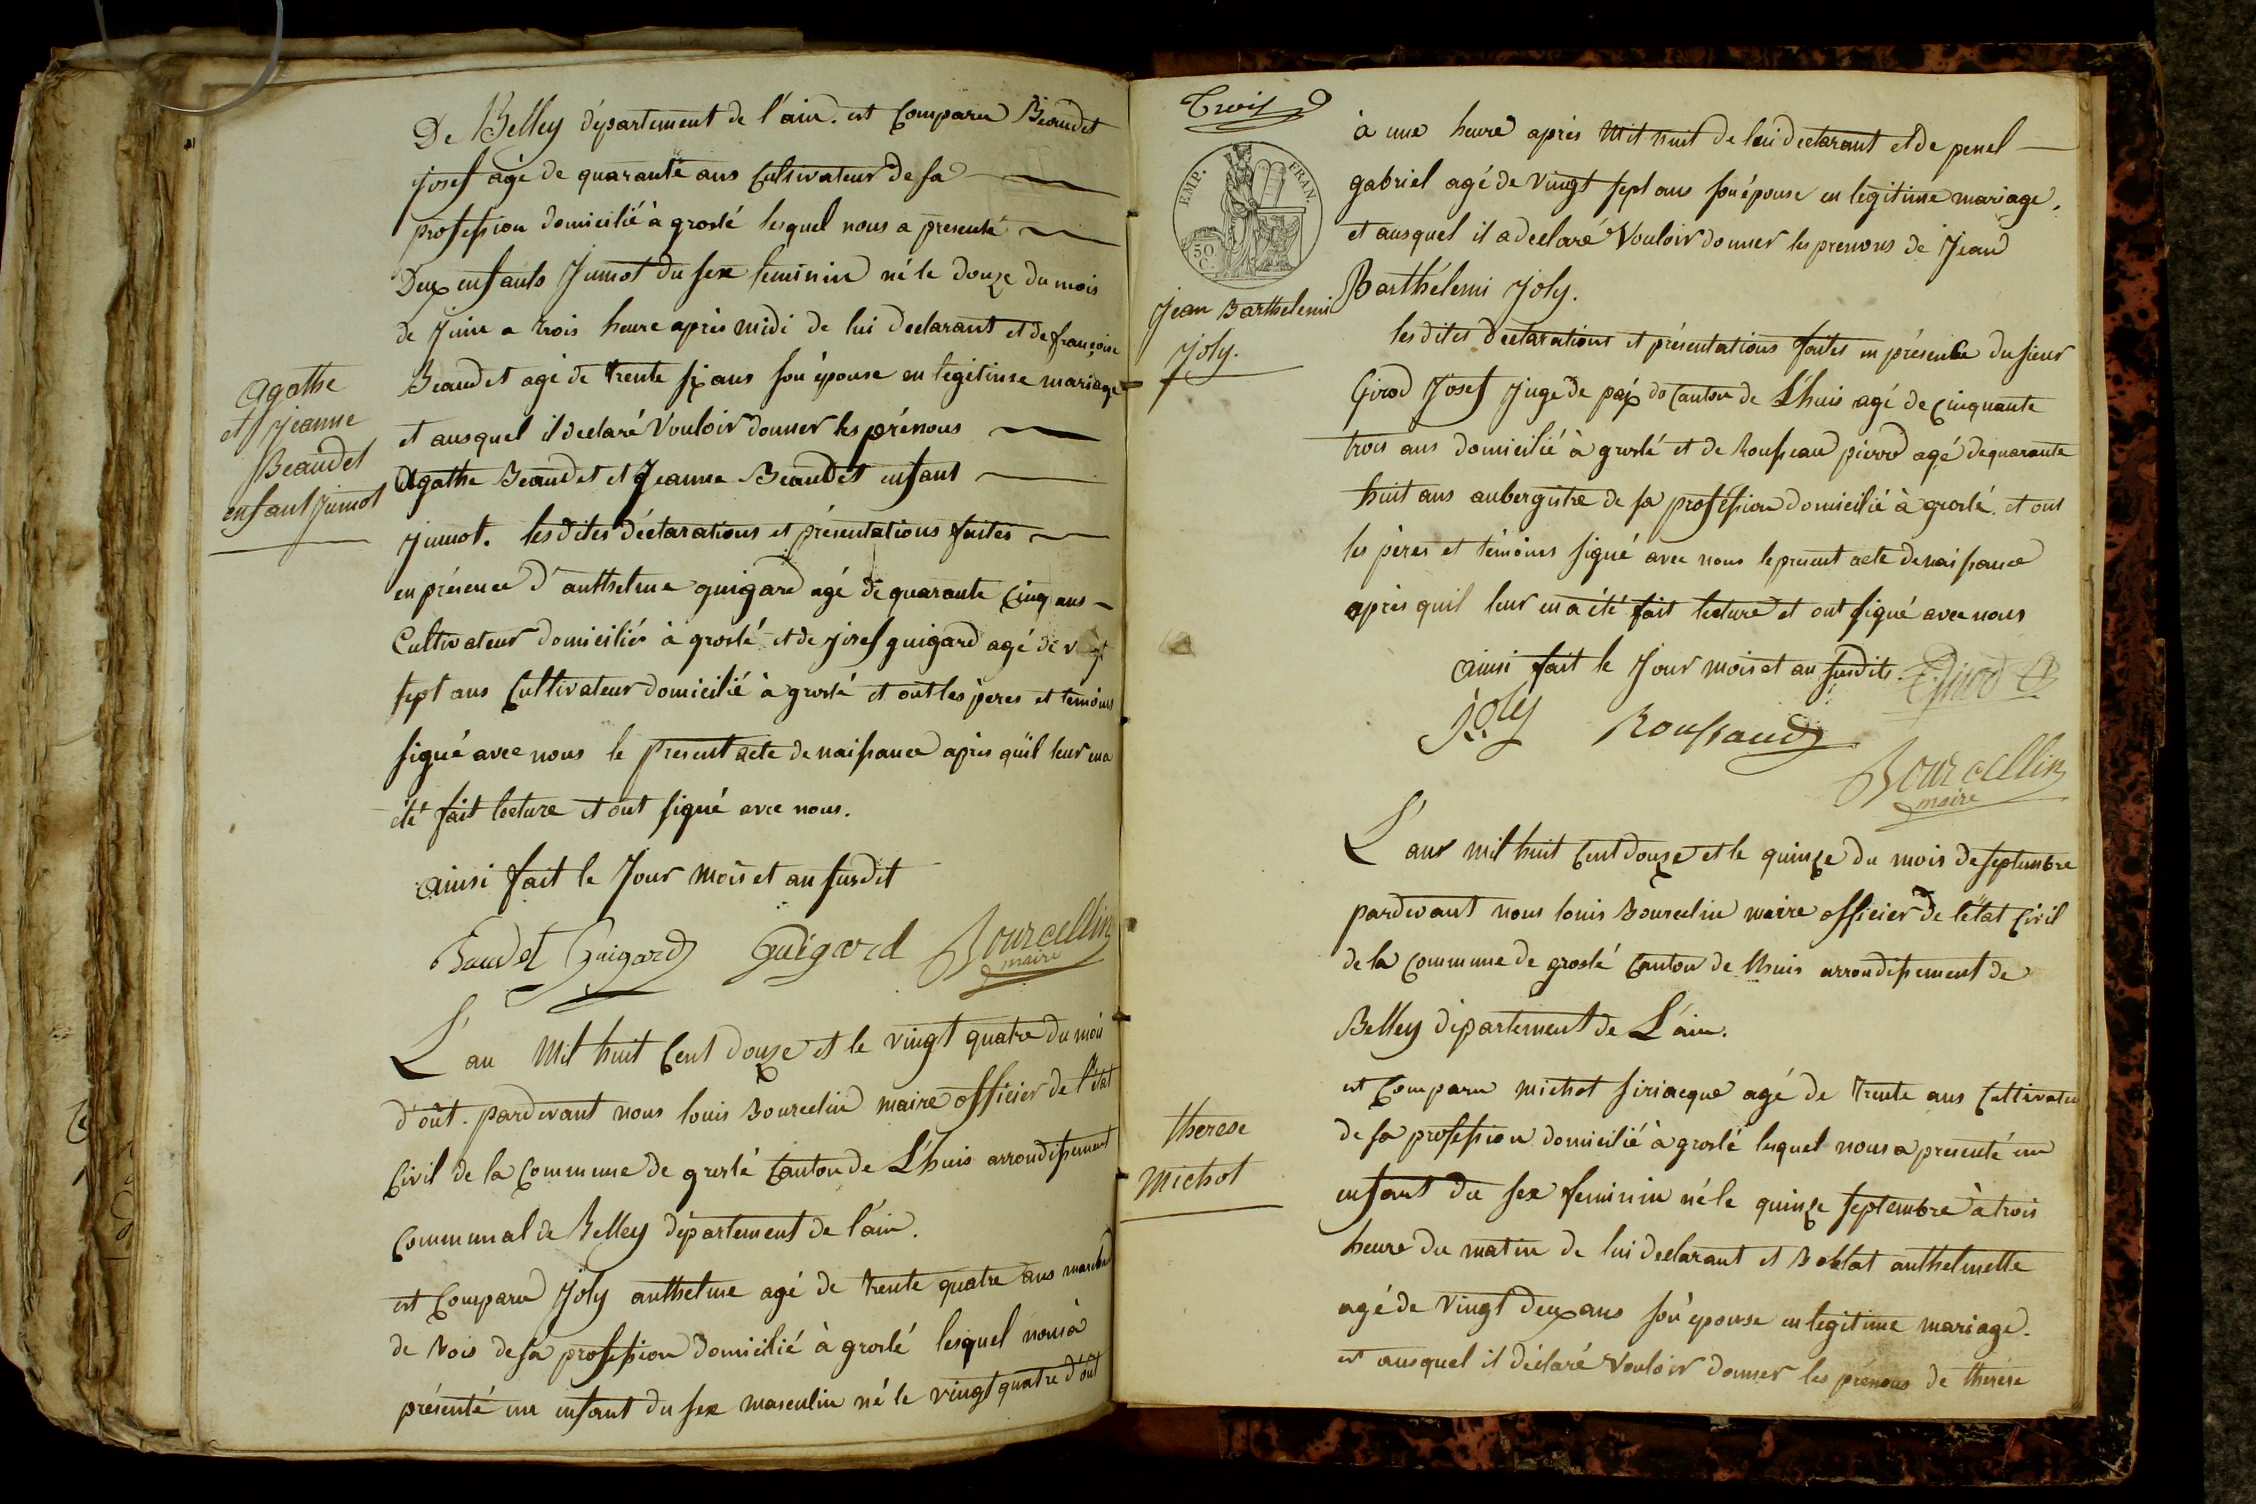 De Belley département de l'ain. est Comparu Beaudet
josef agé de quarante ans Cultivateur de sa
profession domicilié à groslé lesquel nous a presenté
Deux enfants Jumot du sex feminin né le douze du mois
de Juin a trois heure aprés midi de lui declarant et de françoise
Beaudet agé de trente six ans son épouse en legitime mariage
et ausquel il declaré Vouloir donner les prénous
Agathe Beaudet et Jeanne Beaudet enfant
jumot. les dites déclarations et présentations faites
en présence d'anthelme guigard agé de quarante Cinq ans
Cultivateur domicilié à groslé et de josef guigard agé de
sept ans Cultivateur domicilié à groslé et ont les peres et temoins
signé avec nous le present acte de naissance aprés quil leur en a
été fait lecture et ont signé avec nous.
ainsi fait le Jour mois et an susdit
Agathe
et jeanne
Beaudet
enfant jumot
Baudet Guigard Guigard Bourcellin
maire
L'an Mil huit Cent douze et le vingt quatre du moi
d'oût. pardevant nous louis Bourcelin maire officier de l'état
Civil de la Commune de groslé Canton de L'huis arrondissement
Communal de Belley département de l'ain.
est Comparu Joly anthelme agé de trente quatre ans marchand
de bois de sa profession domicilié à groslé lesquel nous à
présenté un enfant du sex masculin né le vingt quatre d'oût
Trois
EMP. FRAN.
50 C.
à une heure aprés Mit nuit de lui declarant et de penel
gabriel agé de vingt sept ans son épouse en legitime mariage.
et ausquel il a declaré Vouloir donner les prenons de Jean
Barthélemi Joly.
Jean Barthelemi
joly.
les dites declarations et présentations faites en présence du sieur
Girod Josef Juge de paix do Canton de L'huis agé de Cinquante
trois ans domicilié à groslé et de Rousseau pierre agé de quarante
huit ans aubergiste de sa profession domicilié à groslé. et ont
les pères et témoins signé avec nous le present acte de naissance
aprés quil leur en a été fait lecture et ont signé avec nous
ainsi fait le Jour mois et an susdits
Girod
joly Roussaud
Bourcellin
maire
L'anr mil huit Cent douze et le quinze du mois de septembre
pardevant nous louis Bourcelin maire officier de l'état Civil
de la Commune de groslé Canton de lhuis arrondissement de
Belley département de L'ain.
est Comparu michot siriacque agé de trente ans Cultivateu
de sa profession domicilié à groslé lesquel nous a presenté un
enfant du sex feminin né le quinze septembre à trois
heure du matin de lui declarant et anthelmette
agé de vingt deux ans son épouse en legitime mariage.
et ausquel il déclaré Vouloir donner les prénous de thérèse
therese
Michot